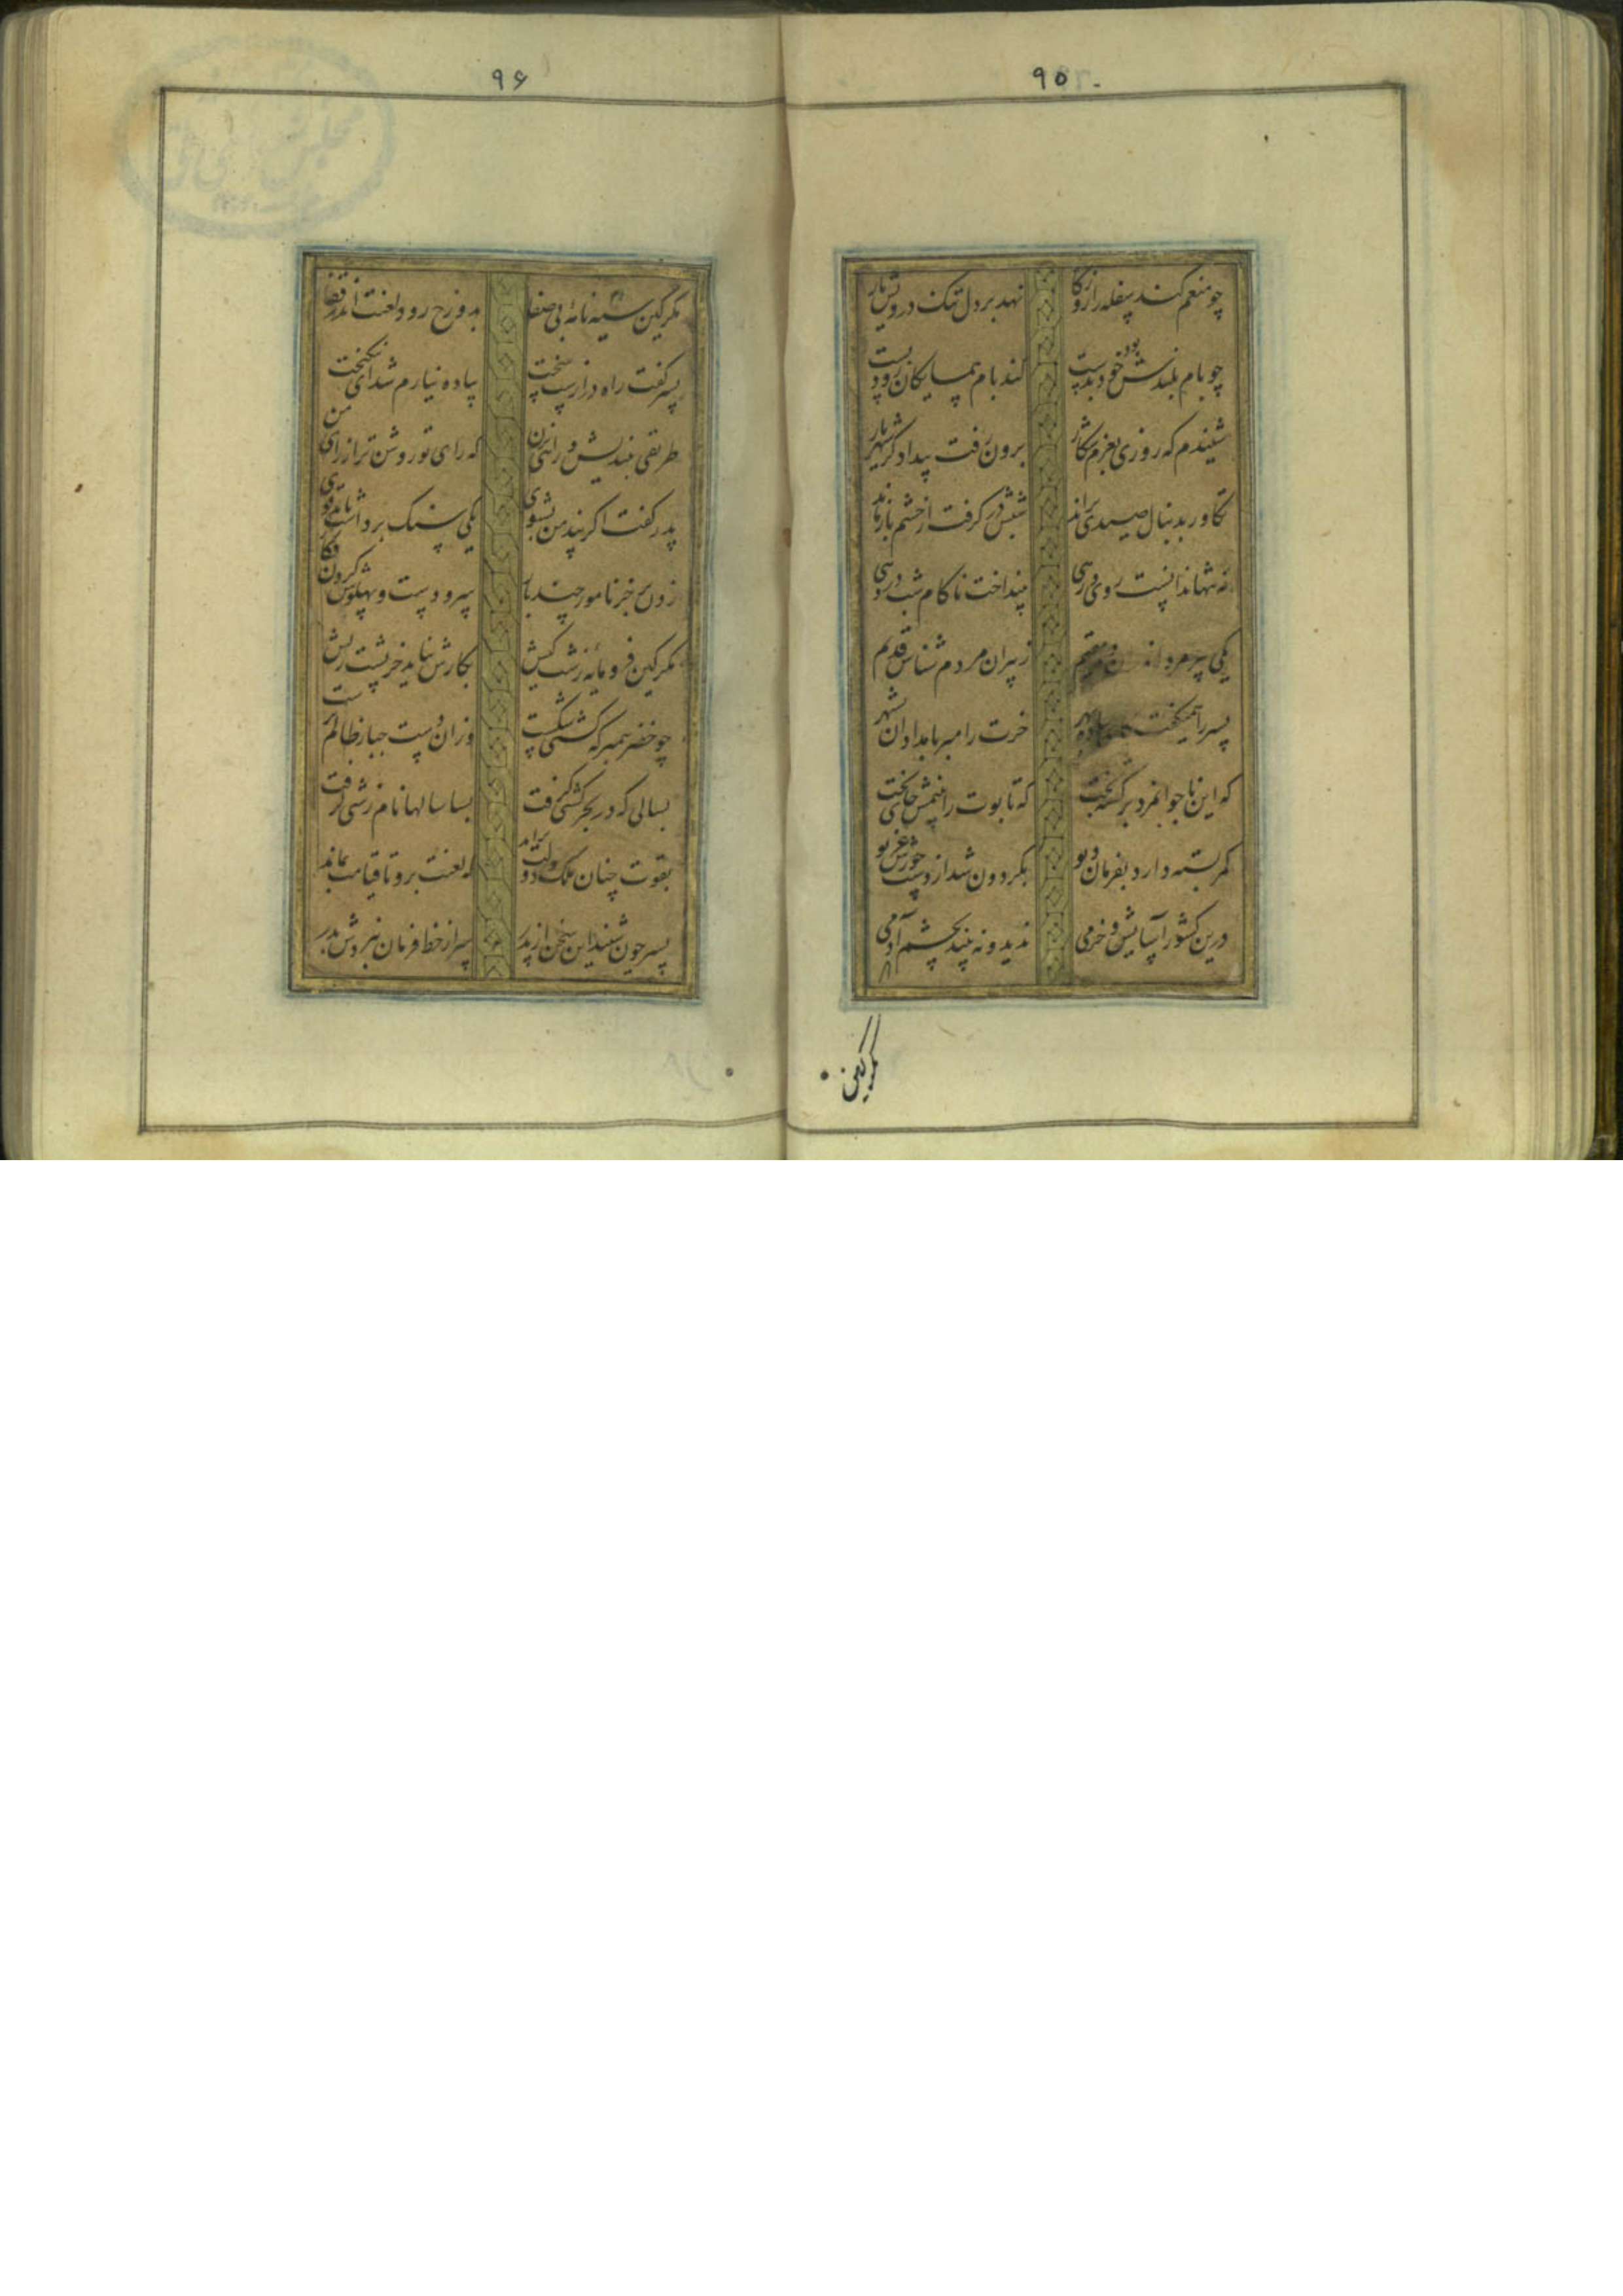 ۹۵
چو منعم کند سفله را روزگار نهد بر دل تنک درویش بار
چو بام بلندش بود خودپرست کند بام همسایکان زود پست
شنیدم که روزی بعزم شکار برون رفت بیدادکر شهریار
تکاور بدنبال صیدی براند شبش در کرفت از حشم باز ماند
نه تنها ندانست روی و رهی بینداخت ناکام شب در دهی
یکی پیرمرد اندران ده مقیم ز پیران مردم شناس قدیم
پسر را همیکفت بهر خرت را مبر بامدادان بشهر
که این ناجوانمرد برکشته بخت که تابوت را بینمش جای تخت
کمر بسته دارد بفرمان دیو بکردون شد از دست جورش غریو
درین کشور آسایش و خرمی ندید و نه بیند بچشم آدمی
مکر کین
۹۶
مکر کین سیه نامه بی صفا بدوزخ رود لعنت اندر قفا
پسر کفت راه درازست سخت پیاده نیارم شد ای نیکبخت
طریقی بیندیش و رایی بزن که رای تو روشن تر از رای من
پدر کفت اکر پند من بشنوی یکی سنک برداشت باید قوی
زدن بر خر نامور چند بار سر و دست و پهلوش کردن فکار
مکر کین فرومایه زشت کیش بکارش نیاید خر پشت ریش
چو خضر پیمبر که کشتی شکست وزان دست جبار ظالم ببست
بسالی که در بحر کشتی کرفت بسا سالها نام زشتی کرفت
بقوت چنان ملک دولت براند که لعنت برو تا قیامت بماند
پسر چون شنید این سخن از پدر سر از خط فرمان نبردش بدر